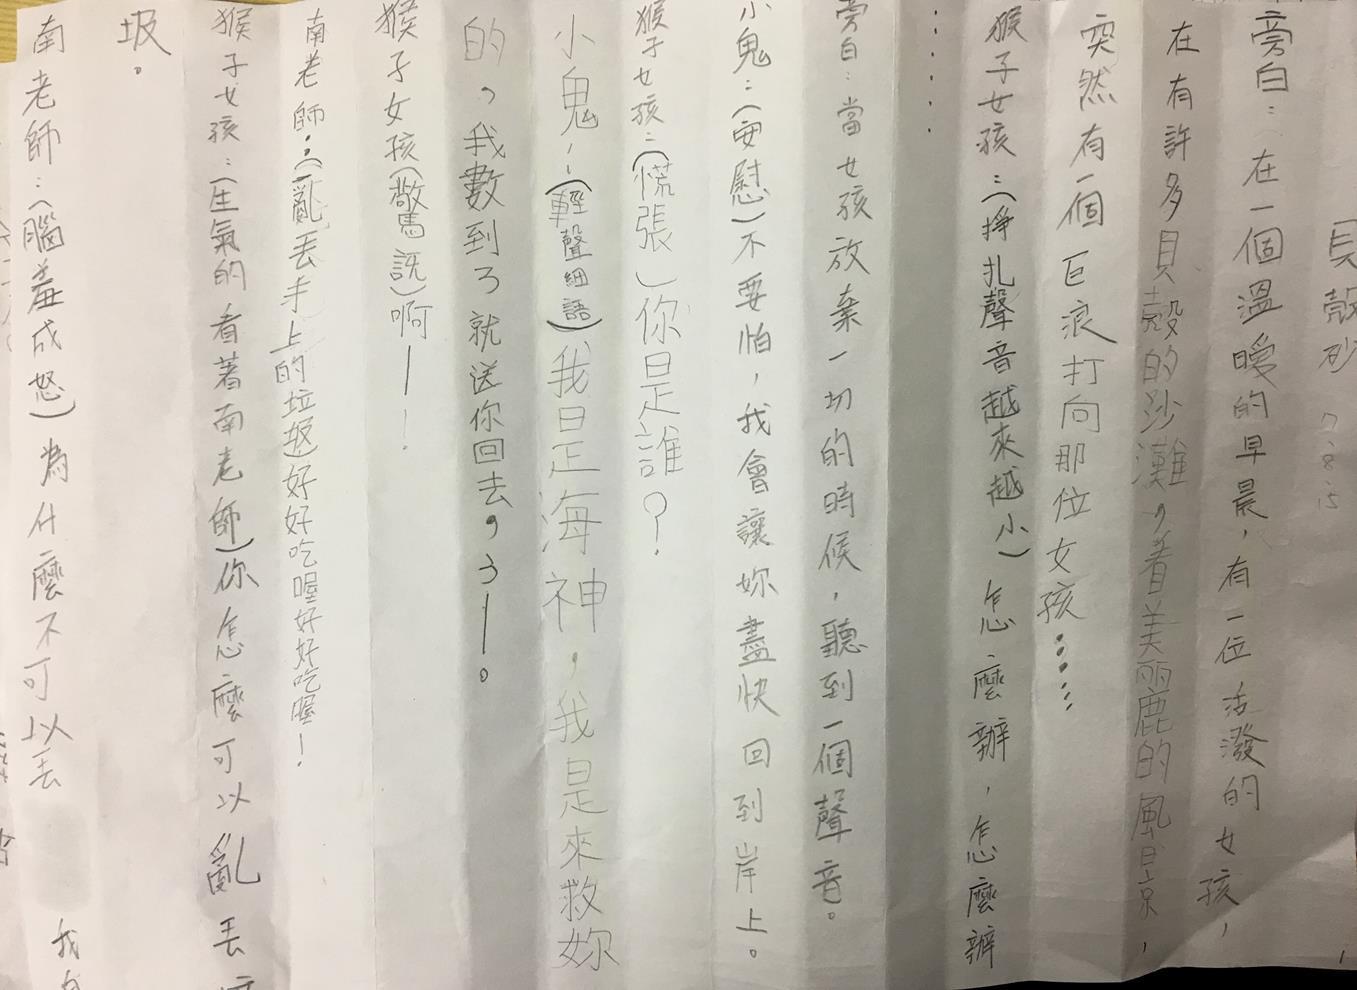 貝殼砂 7.8.15
旁白：在一個溫暖的早晨，有一位活潑的女孩，
在有許多貝殼的沙灘，看著美丽鹿的風景，
突然有一個巨浪打向那位女孩……
猴子女孩：（掙扎聲音越來越小）怎麼辦，怎麼辦
……
旁白：當女孩放棄一切的時候，聽到一個聲音。
小鬼：（安慰）不要怕，我會讓妳盡快回到岸上。
猴子女孩：（慌張）你是誰？！
小鬼：（輕聲細語）我是海神，我是來救妳
的，我數到3就送你回去，3—。
猴子女孩（驚訝）啊—！
南老師：（亂丟手上的垃圾）好好吃喔好好吃喔！
猴子女孩：（生氣的看著南老師）你怎麼可以亂丟
圾。
南老師：（腦羞成怒）為什麼不可以丟 我